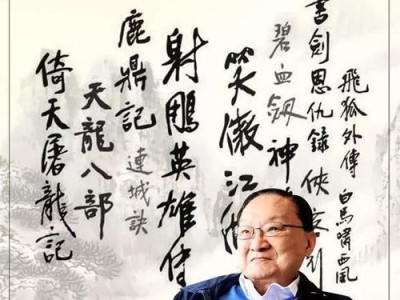 飛狐外傳
白馬嘯西風
書劍恩仇錄
俠客行
碧血劍
神
笑傲江湖
射鵰英雄傳
鹿鼎記
連城訣
天龍八部
倚天屠龍記